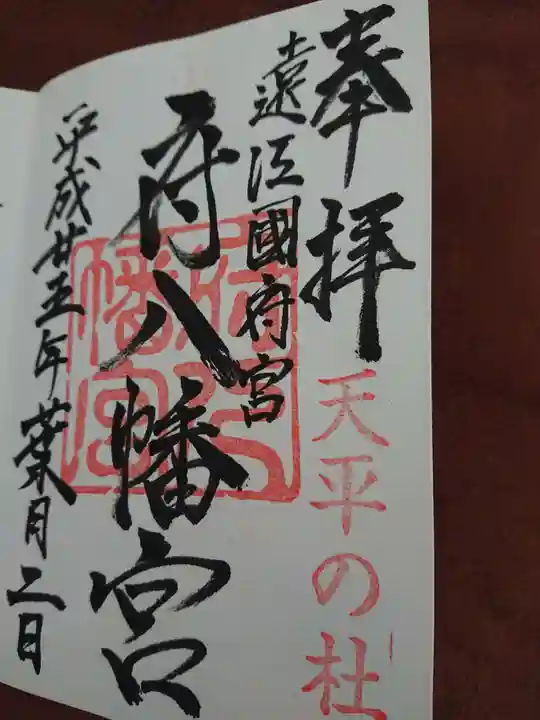 奉拝
天平の杜
遠江國府宮
府八幡宮
府八幡宮
平成廿五年葉月二日